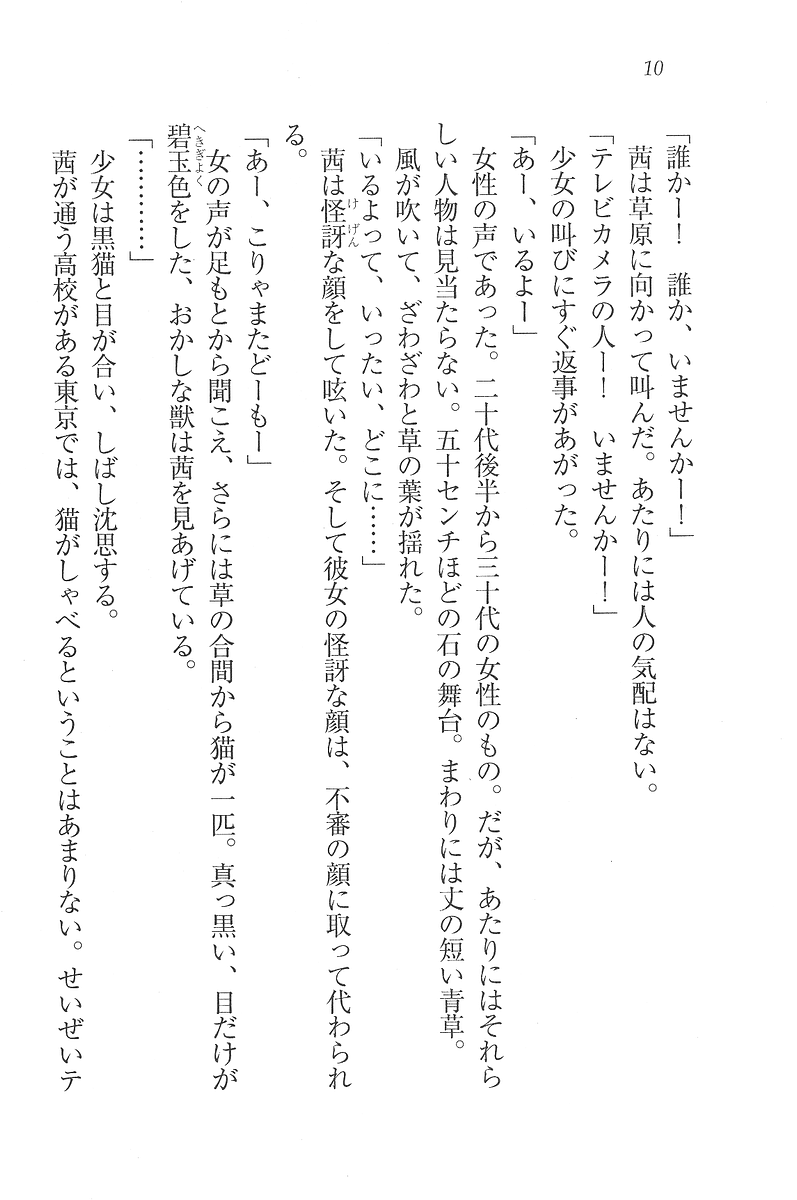 10
「誰かー！　誰か、いませんかー！」
　茜は草原に向かって叫んだ。あたりには人の気配はない。
「テレビカメラの人ー！　いませんかー！」
　少女の叫びにすぐ返事があがった。
「あー、いるよー」
　女性の声であった。二十代後半から三十代の女性のもの。だが、あたりにはそれら
しい人物は見当たらない。五十センチほどの石の舞台。まわりには丈の短い青草。
　風が吹いて、ざわざわと草の葉が揺れた。
「いるよって、いったい、どこに……」
　茜は怪訝な顔をして呟いた。そして彼女の怪訝な顔は、不審の顔に取って代わられ
る。
「あー、こりゃまたどーもー」
　女の声が足もとから聞こえ、さらには草の合間から猫が一匹。真っ黒い、目だけが
碧玉色をした、おかしな獣は茜を見あげている。
「…………」
　少女は黒猫と目が合い、しばし沈思する。
　茜が通う高校がある東京では、猫がしゃべるということはあまりない。せいぜいテ